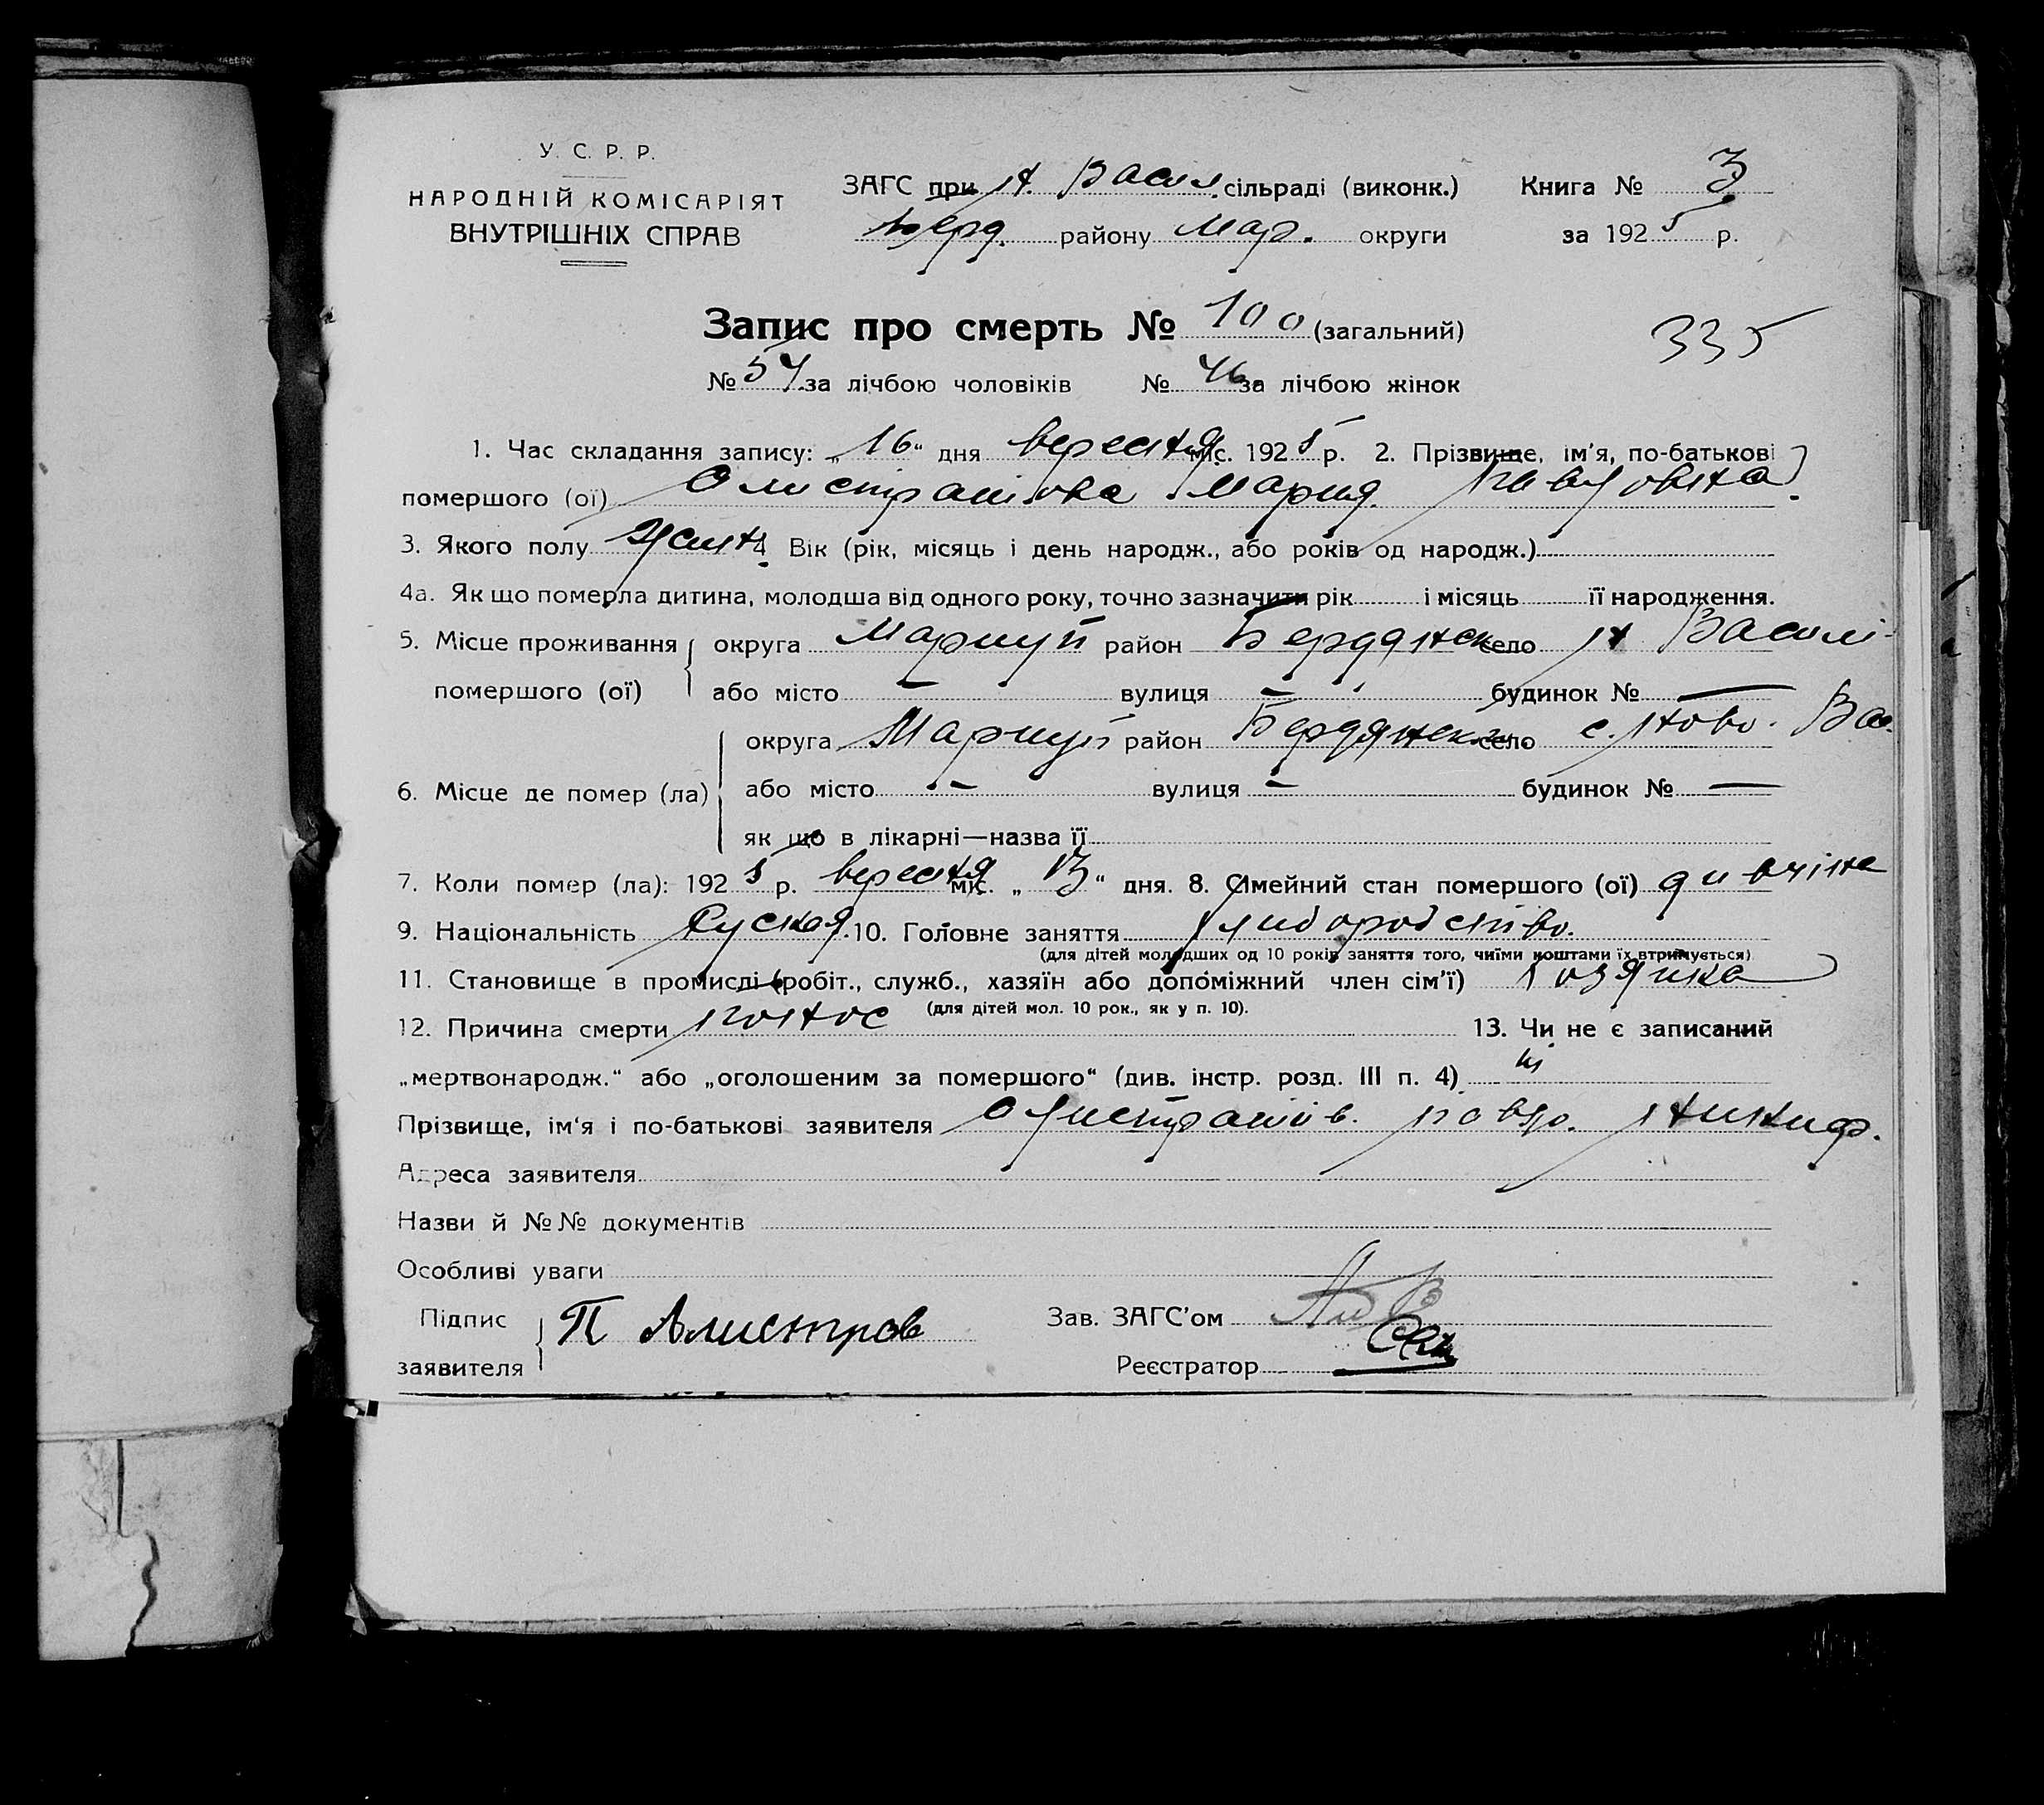 У. С. Р. Р.
НАРОДНІЙ КОМІСАРІЯТ
ВНУТРІШНІХ СПРАВ
ЗАГС при Н. Васил. сільраді (виконк.) Книга № 3
Берд. району Мар. округи за 1925 р.
Запис про смерть № 100 (загальний)
335
№ 54 за лічбою чоловіків № 46 за лічбою жінок
1. Час складання запису: „16“ дня вересня міс. 1925 р. 2. Прізвище, ім'я, по-батькові
помершого (ої) Мария
3. Якого полу 4 Вік (рік, місяць і день народж., або років од народж.)
4а. Як що померла дитина, молодша від одного року, точно зазначити рік і місяць її народження.
5. Місце проживання округа Мариуп район Бердянск село Н Василі-
помершого (ої) або місто — вулиця — будинок № —
округа Мариуп район Бердянск село с. Ново. Вас.
6. Місце де помер (ла) або місто — вулиця — будинок № —
як що в лікарні—назва її
7. Коли помер (ла): 1925 р. вересня міс. „13“ дня. 8. Сімейний стан помершого (ої) дивчіна
9. Національність Руская. 10. Головне заняття хлибородство.
(для дітей молодших од 10 років заняття того, чиїми коштами їх втримується)
11. Становище в промислі (робіт., служб., хазяїн або допоміжний член сім'ї) хозяика
(для дітей мол. 10 рок., як у п. 10).
12. Причина смерти понос 13. Чи не є записаний
„мертвонародж.“ або „оголошеним за помершого“ (див. інстр. розд. III п. 4) ні
Прізвище, ім'я і по-батькові заявителя Никиф.
Адреса заявителя
Назви й №№ документів
Особливі уваги
Підпис
заявителя П Алистров
Зав. ЗАГС'ом
Реєстратор